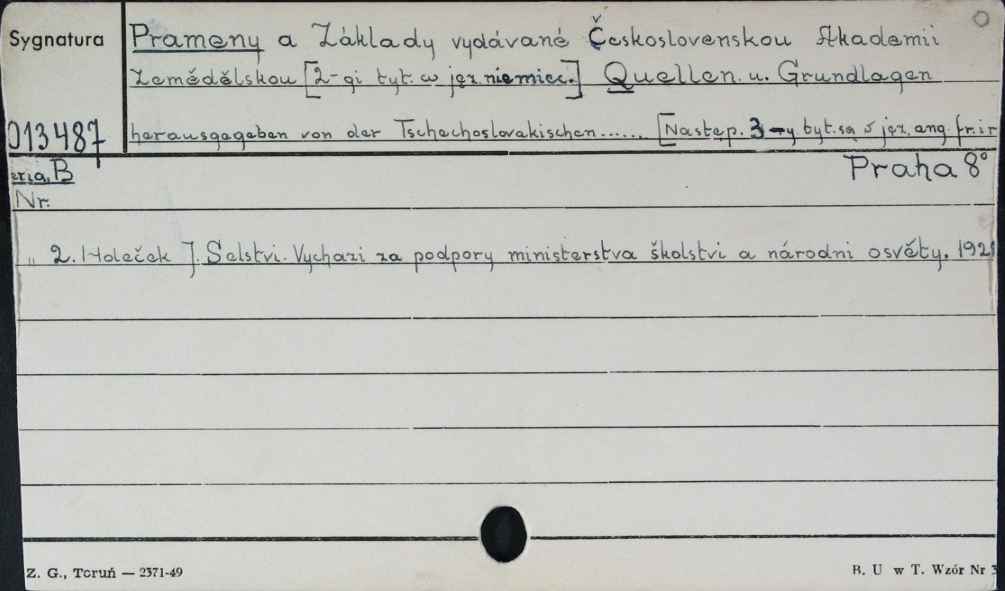 Sygnatura
Prameny a Základy vydávané Československou Akademii
Zemědělskou [2-gi tyt. w jęz. niemiec.] Quellen u. Grundlagen
013487
herausgegeben von der Tschechoslovakischen...... [Następ. 3-y tyt. są jęz. ang. fr. i r
eria, B
Praha 8°
Nr.
" 2. Holeček J. Selstvi. Vychazi za podpory ministerstva školstvi a národni osvěty. 192
Z. G., Toruń — 2371-49
B. U w T. Wzór Nr 3